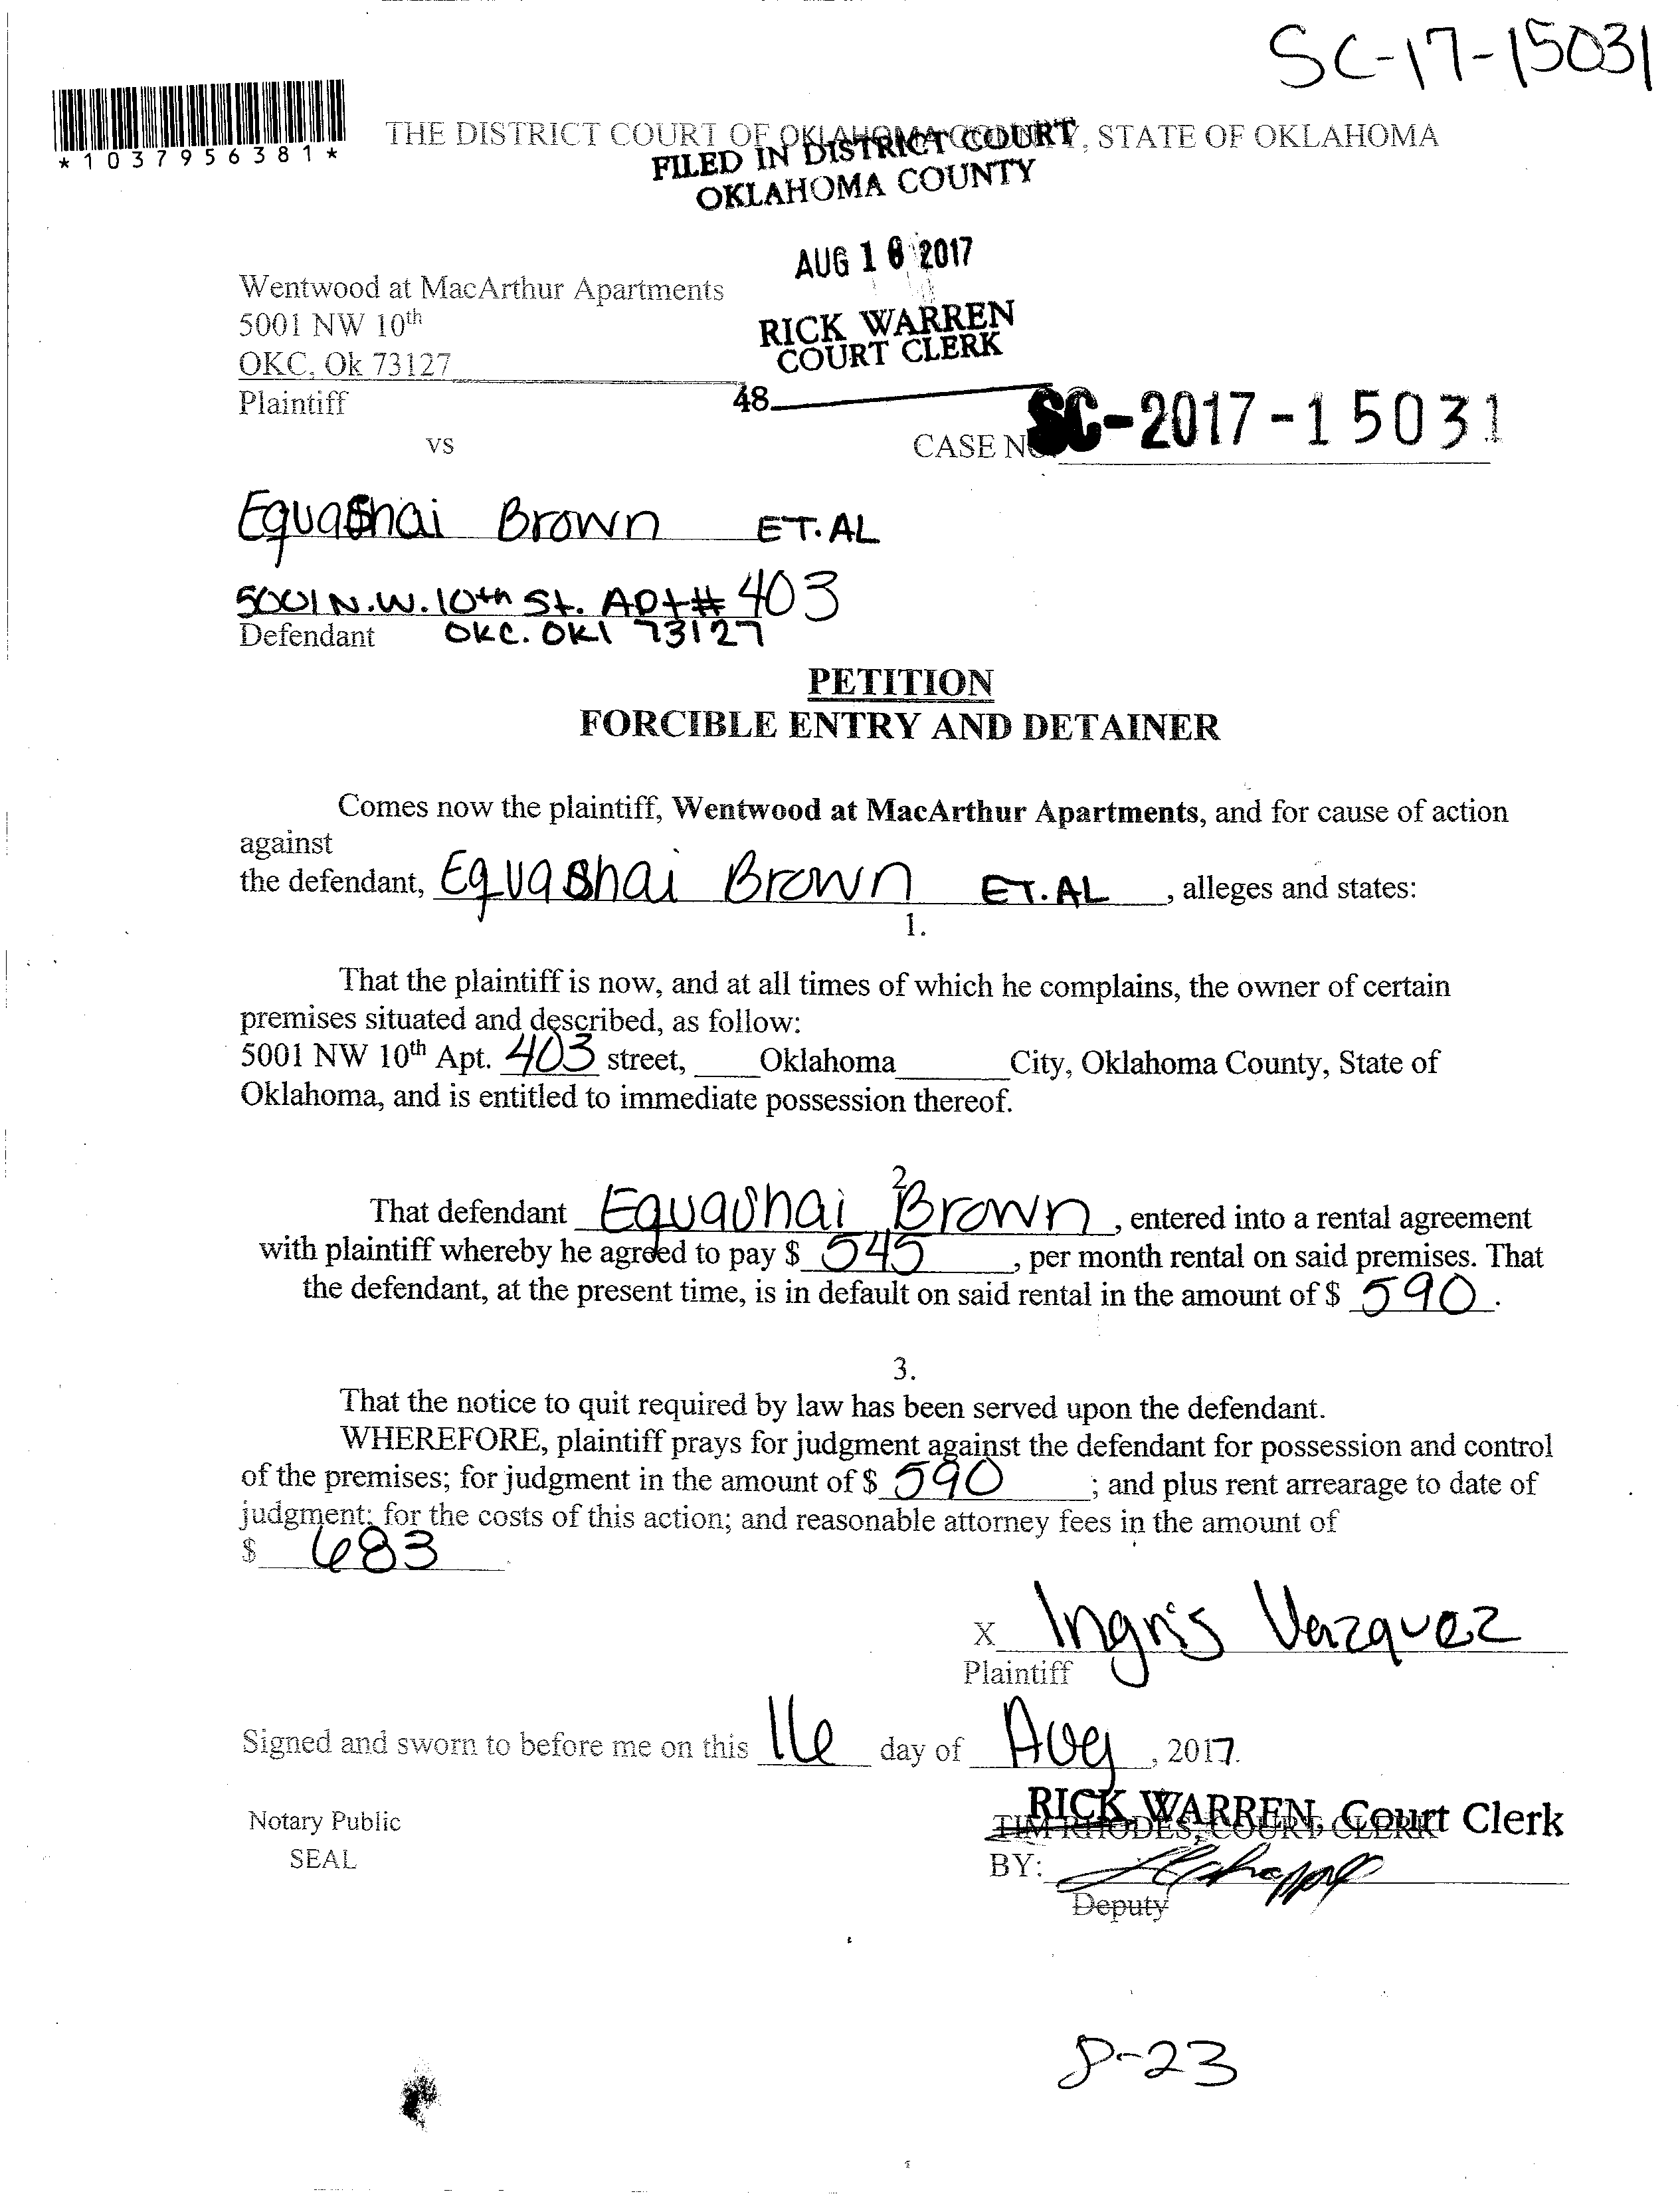 SC-17-15031
*1037956381*
THE DISTRICT COURT OF OKLAHOMA COUNTY, STATE OF OKLAHOMA
FILED IN DISTRICT COURT
OKLAHOMA COUNTY
AUG 16 2017
Wentwood at MacArthur Apartments
5001 NW 10th
RICK WARREN
COURT CLERK
OKC, Ok 73127
Plaintiff
48
vs
CASE NO. SC-2017-15031
Equashai Brown ET.AL
5001 N.W. 10th St. Apt# 403
Defendant OKC. OKl 73127
PETITION
FORCIBLE ENTRY AND DETAINER
Comes now the plaintiff, Wentwood at MacArthur Apartments, and for cause of action
against
the defendant, Equashai Brown ET.AL, alleges and states:
1.
That the plaintiff is now, and at all times of which he complains, the owner of certain
premises situated and described, as follow:
5001 NW 10th Apt. 403 street, Oklahoma City, Oklahoma County, State of
Oklahoma, and is entitled to immediate possession thereof.
2.
That defendant Equashai Brown, entered into a rental agreement
with plaintiff whereby he agreed to pay $ 545, per month rental on said premises. That
the defendant, at the present time, is in default on said rental in the amount of $ 590.
3.
That the notice to quit required by law has been served upon the defendant.
WHEREFORE, plaintiff prays for judgment against the defendant for possession and control
of the premises; for judgment in the amount of $ 590; and plus rent arrearage to date of
judgment; for the costs of this action; and reasonable attorney fees in the amount of
$ 683
x Ingris Vazquez
Plaintiff
Signed and sworn to before me on this 16 day of Aug, 2017.
RICK WARREN, Court Clerk
Notary Public
TIM RHODES, COURT CLERK
SEAL
BY:
Deputy
8-23